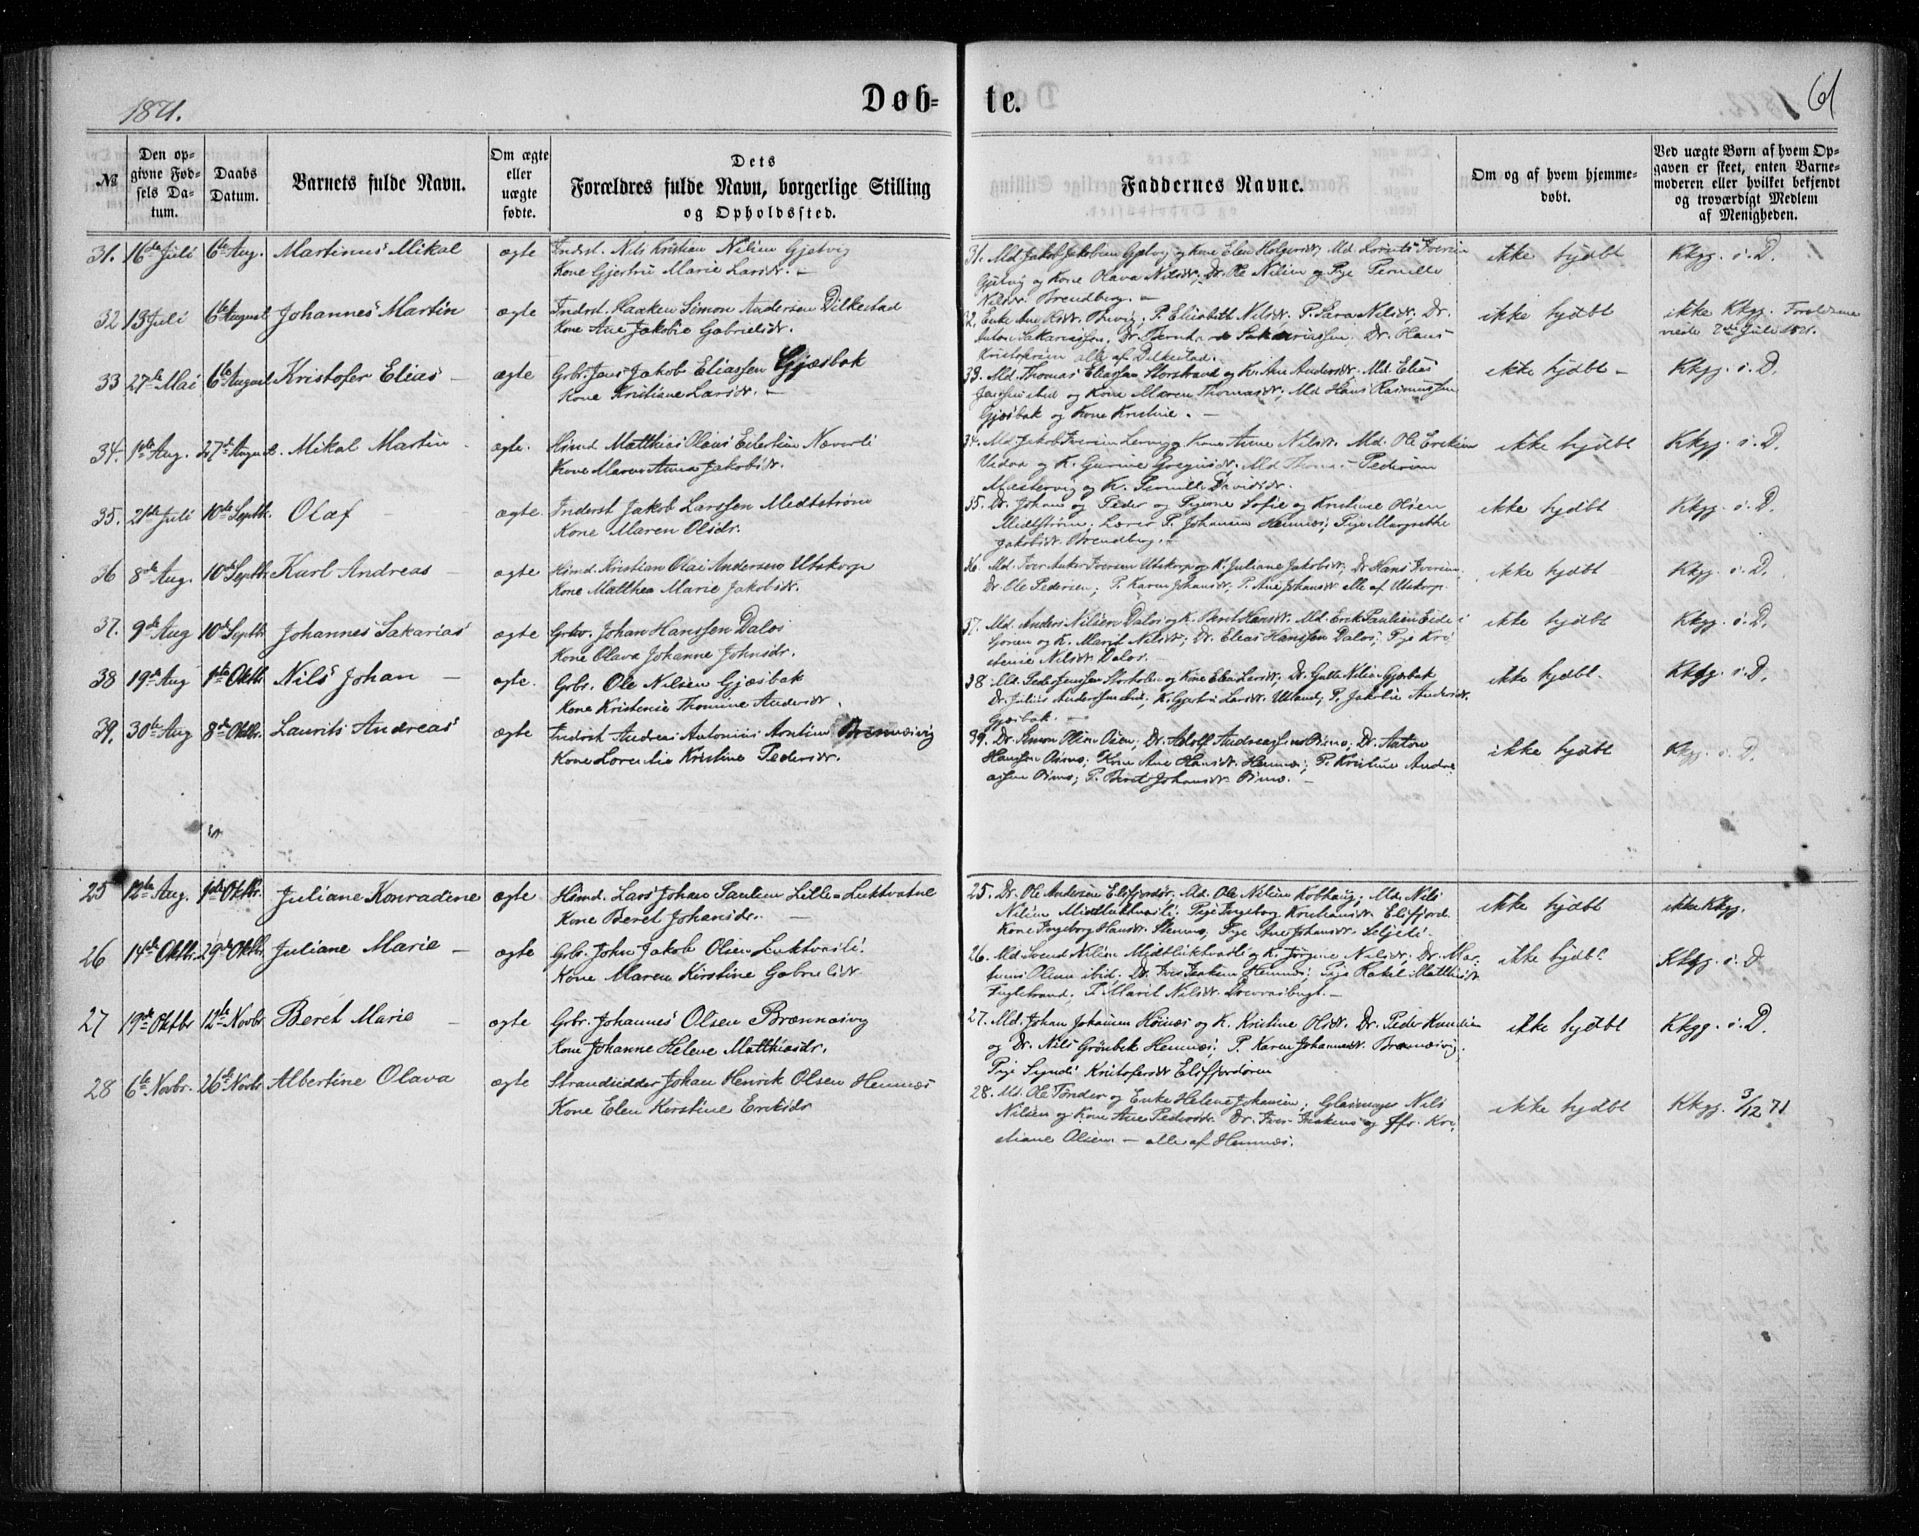 1871.
Døb-
te.
61
№
Den op-
givne Fød-
sels Da-
tum.
Daabs
Datum.
Barnets fulde Navn.
Om ægte
eller
uægte
fødte.
Dets
Forældres fulde Navn, borgerlige Stilling
og Opholdssted.
Faddernes Navne.
Om og af hvem hjemme-
døbt.
Ved uægte Børn af hvem Op-
gaven er skeet, enten Barne-
moderen eller hvilket bekjendt
og troværdigt Medlem
af Menigheden.
31. 16de Juli 6te Aug. Martinus Mikal ægte Inderst. Nils Kristian Nilsen Gjetvig
Kone Gjertru Marie Larsdr. –
31. Md. Jakob Jakobsen Gjetvig og Kone Elen Holgersdr, Md. Lorents Iversen
Gjetvig og Kone Olava Nilsdr, Dr. Ole Nilsen og Pige Pernille
Nilsdr Brendberg. –
ikke hjdbt Kkgg. i. D.
32 13 Juli 6te August Johannes Martin ægte Inderst. Haaken Simon Andersen Dilkestad
Kone Ane Jakobie Gabrielsdr.
32. Enke Ane P. Elisabeth Nilsdr. P. Sara Nilsdr, Dr.
Anton Sakariassen, Dr. Bernt Sakariassen, Dr. Hans
Kristofersen alle af Dilkestad.
ikke hjdbt ikke Kkgg. Forældrene
viede 2den Juli 1871.
33 27de Mai 6te August Kristofer Elias – ægte Gbr. Jens Jakob Eliassen Gjæsbak
Kone Kristiane Larsdr. –
33. Md. Thomas Eliassen Storstrand og K. Ane Andersdr. Md. Elias
og Kone Maren Thomasdr; Md Hans Rasmussen
Gjæsbak og Kone Kristine. –
ikke hjdbt – Kkgg. i. D.
34. 1ste Aug. 27de August Mikal Martin ægte. Hsmd Matthias Olaus Edertsen Neverli
Kone Maren Anna Jakobsdr.
34. Md. Jakob Iversen Lervig og Kone Anne Nilsdr. Md. Ole Eriksen
og K. Gurine Gregusdr. Md Thomas Pedersen
Mastervig og K. Pernille Davidsdr.
ikke hjdbt Kkgg. i. D.
35. 21de Juli 10de Septbr. Olaf – ægte. Inderst Jakob Larssen Medtstrøm
Kone Maren Olsdr.
35. Dr. Johans og Peder og Pigerne Sofie og Kristine Olsen
Midtstrøm; Lærer P. Johansen Hemnæs; Pige Margrethe
Jakobsdr. Brendberg. –
ikke hjdbt Kkgg. i. D.
36 8de Aug. 10de Septbr. Karl Andreas – ægte Hsmd. Kristian Olai Andersen Utskarpe
Kone Matthea Marie Jakobsdr.
36. Md. Iver Anker Iversen Utskarp og K. Juliane Jakobsdr; Dr. Hans Iversen,
Dr. Ole Pedersen; P. Karen Johansdr; P. Ane Johansdr alle af Utskarp.
ikke hjdbt Kkgg. i. D.
37. 9de Aug 10de Septbr Johannes Sakarias ægte Gbr. Johan Hanssen Dalos
Kone Olava Johanne Johnsdr.
37. Md. Anders Nilsen Dalos og K. Beret Hansdr. Md. Erik Paulsen Eide i
og K. Marit Nilsdr; Dr. Elias Hanssen Dalos; Pige Kri
stenie Nilsdr Dalos. –
ikke hjdbt Kkgg. i. D.
38 19de Aug 1ste Oktbr Nils Johan – ægte. Gbr. Ole Nilsen Gjæsbak
Kone Kristense Thomine Andersdr.
38 Md. Peder Jenssen Storholm og Kone Elen Larsdr. Dr. Gulle Nilsen Gjesbak
Dr. Julius Anderssen ibid; K. Gjertru Larsdr. Utland, P. Jakobie Andersdr.
Gjæsbak. –
ikke hjdbt. Kkgg i. D.
39. 30te Aug 8de Oktbr. Laurits Andreas ægte Inderst Andreas Antonius Arntsen Brennæsvig
Kone Lorentse Kristine Pedersdr.
39. Dr. Simon Olsen Osen; Dr. Adolf Andreassen Bismo; Dr. Anton
Hanssen Bismo; Kone Ane Hansdr Hemnæs; P. Kristine Andre
assen Bismo; P. Beret Johansdr Bismo. –
ikke hjdbt Kkgg. i. D.
25 12te Aug. 1ste Oktbr. Juliane Konradine ægte Hsmd. Lars Johan Paulsen Lille-Luktvatne
Kone Beret Johansdr. –
25. Dr. Ole Andersen Elsfjordør; Md. Ole Nilsen Kobhaug; Md. Nils
Nilsen Midtluktvasli; Pige Ingeborg Kristiansdr. Elsfjord.
Kone Ingeborg Hansdr. Stennæs, Pige Ane Johansdr. Seljeli.
ikke hjdbt ikke Kkgg.
26 14de Oktbr. 29de Oktbr. Juliane Marie – ægte Gbr. John Jakob Olsen Luktvasli.
Kone Maren Kirstine Gabrielsdr.
26. Md. Svend Nilsen Midtluktvasli og K. Jørgine Nilsdr; Dr. Mar-
tinus Olsen ibid; Dr. Iver Isaksen Hemnæs; Pige Rakel Matthisdr
Fuglstrand; P. Marit Nilsdr. –
ikke hjdbt Kkgg i. D
27 19de Oktbr 12te Novbr. Beret Marie – ægte Gbr. Johannes Olsen Brennæsvig
Kone Johanne Helene Matthiasdr.
27. Md. Johan Johansen Høinæs og K. Kristine Olsdr. Dr. Peder Knudsen
og Dr. Nils Grønbek Hemnæs; P. Karen Johannesdr Brennæsvig.
Pige Synnøi Kristofersdr Elsfjordøren
ikke hjdbt Kkgg. i. D.
28 6te Novbr. 26de Novbr. Albertine Olava ægte Strandsidder Johan Henrik Olsen Hemnæs
Kone Elen Kirstine Eriksdr
28. Md. Ole Tønder og Enke Helene Johansen; Glasmager Nils
Nilsen og Kone Ane Pedersdr. Dr. Iver Isaksen og Jfr. Kri-
stiane Olsen – alle af Hemnæs.
ikke hjdbt Kkgg. 3/12 71